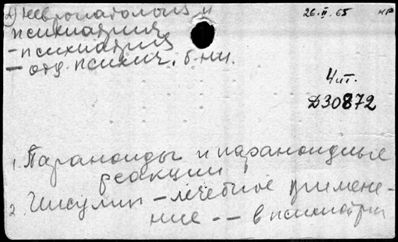 а) невропатология и
психиатрия
– психиатрия
– отд. психич. б-ни.
26.II.65
кр
4 ит.
Д30872
1. Параноиды и параноидные
реакции
2. Инсулин – лечебное примене-
ние – – в психиатрии